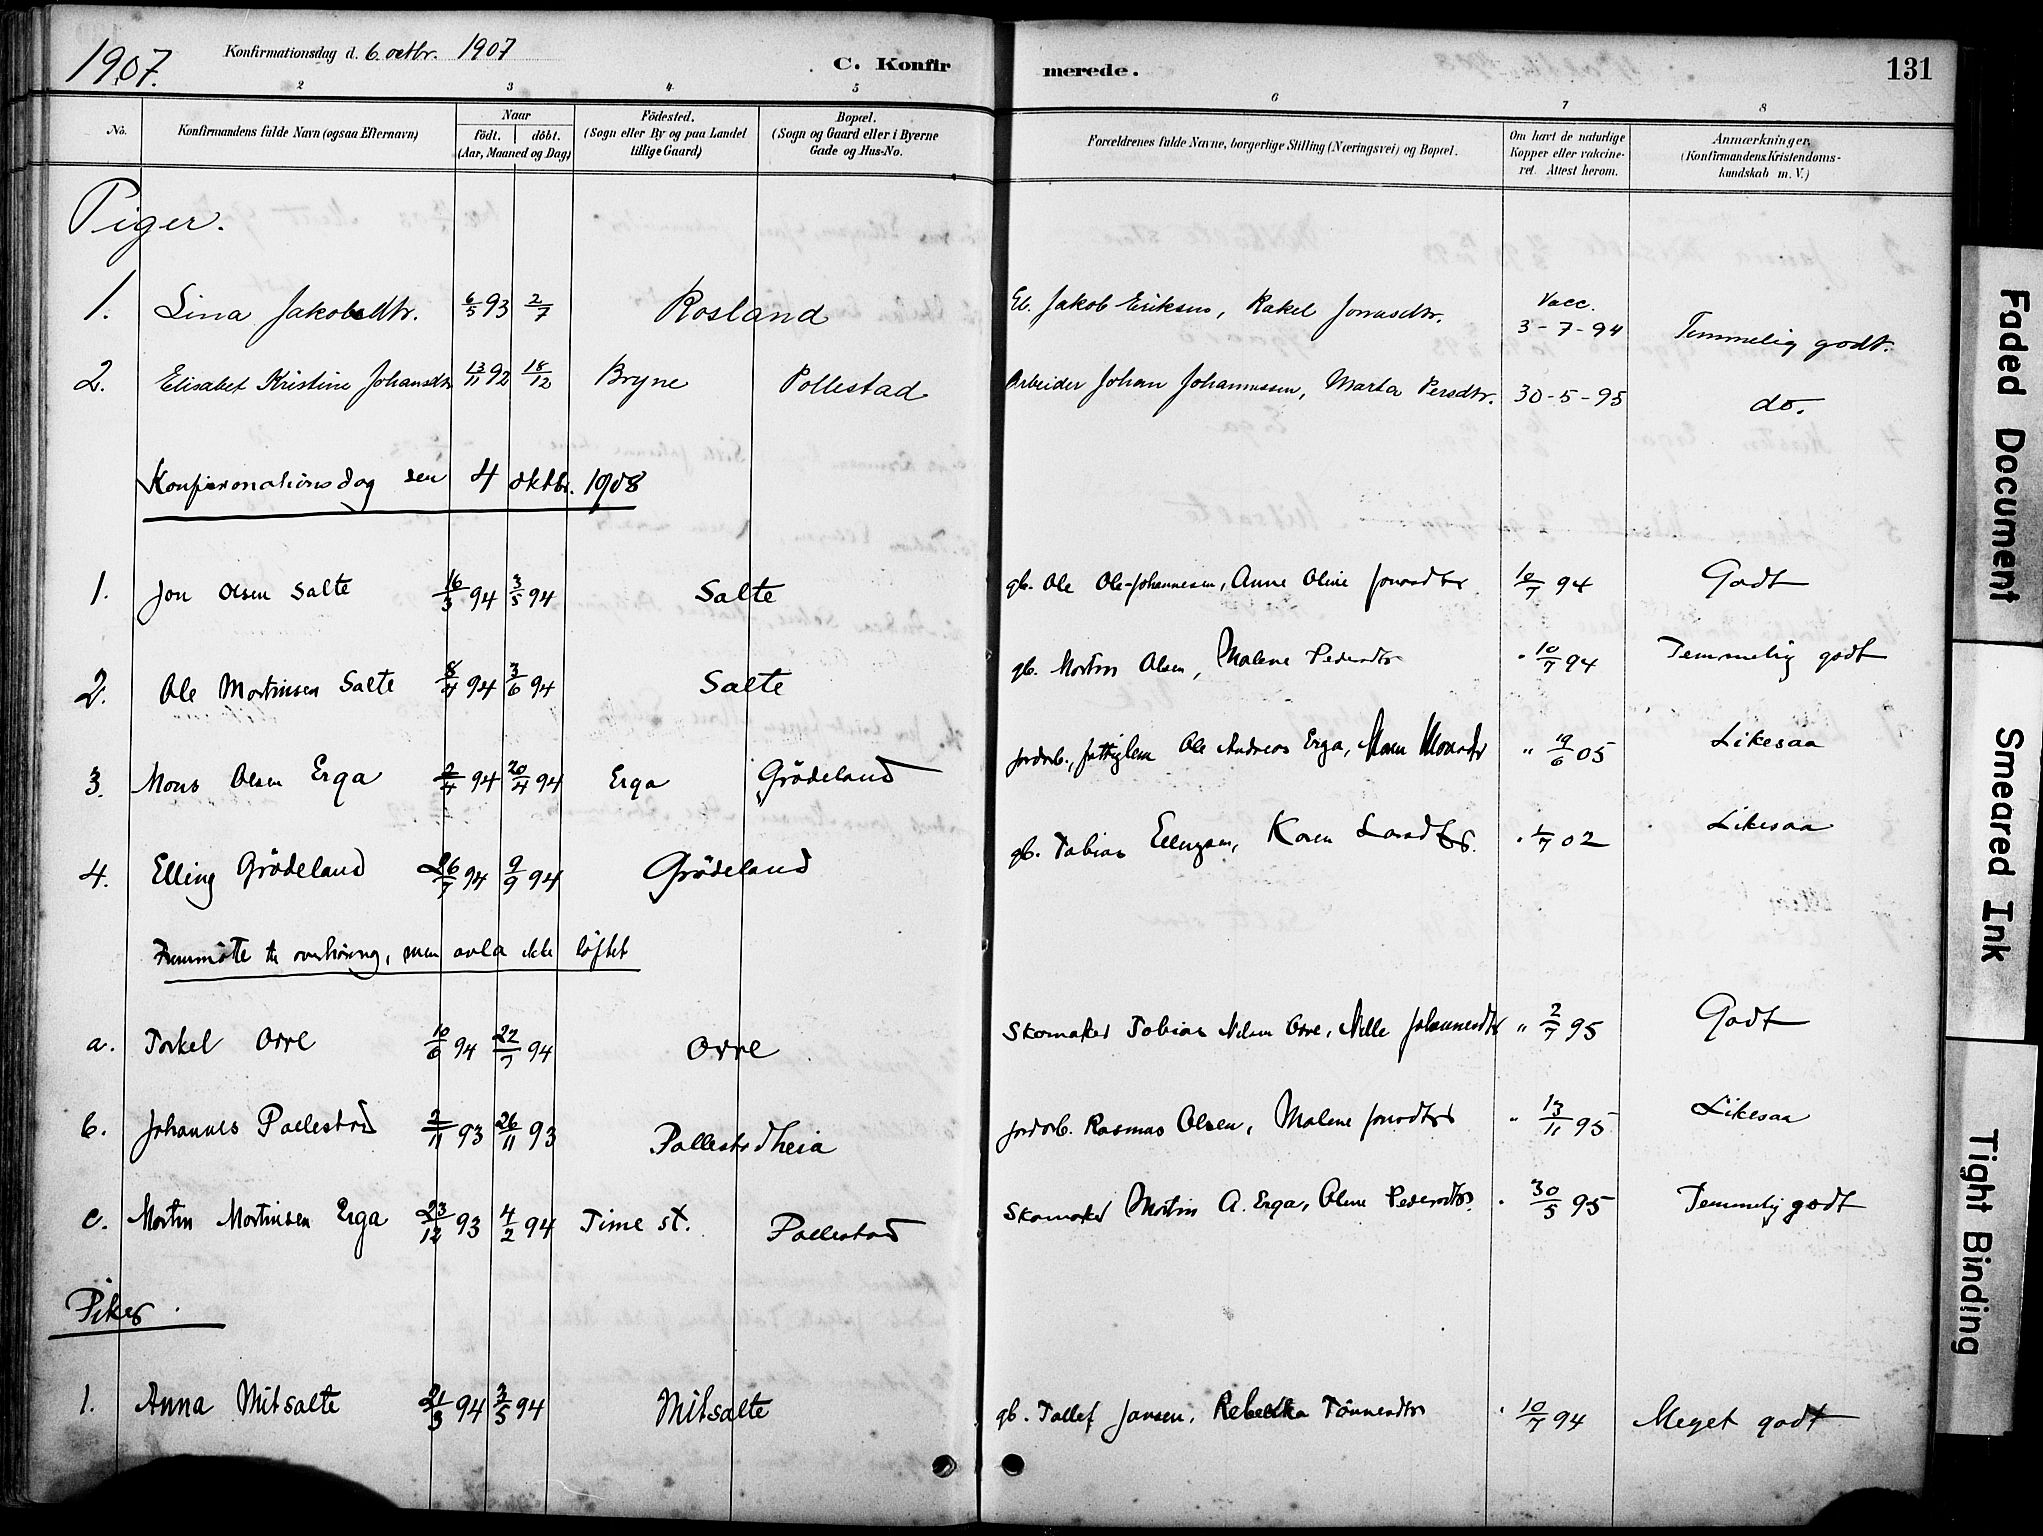 1907. Konfirmationsdag d. 6. octbr. 1907 C. Konfirmerede. 131
2 3 4 5 6 7 8
No. Konfirmandens fulde Navn (ogsaa Efternavn) Naar födt. döbt. (Aar, Maaned og Dag) Födested. (Sogn eller By og paa Landet tillige Gaard) Bopæl. (Sogn og Gaard eller i Byerne Gade og Hus-No. Forældrenes fulde Navne, borgerlige Stilling (Næringsvei) og Bopæl. Om havt de naturlige Kopper eller vakcineret. Attest herom. Anmærkninger. (Konfirmandens Kristendomskundskab m. V.)
Piger.
1. Lina Jakobsdtr. 6/5 93 2/7 Rosland Jakob Eriksen, Rakel Jonasdtr. Vacc. 3-7-94 Temmelig godt.
2. Elisabet Kristine Johansdtr 13/11 92 18/12 Bryne Pollestad Arbeider Johan Johannessen, Marta Persdtr. 30-5-95 do.
Konfirmationsdag den 4 oktbr. 1908
1. Jon Olsen Salte 16/3 94 3/5 94 Salte gb. Ole Ole-Johannesen, Anne Oline Jonasdtr 10/7 94 Godt
2. Ole Mortinsen Salte 8/4 94 3/6 94 Salte gb. Mortin Olsen, Malene Pedersdtr " 10/7 94 Temmelig godt
3. Mons Olsen Erga 2/4 94 20/4 94 Erga Grödeland jordarb., fattiglem Ole Andreas Erga, Maren Monsdtr " 19/6 05 Likesaa
4. Elling Grödeland 26/7 94 9/9 94 Grödeland gb. Tobias Ellingsen, Karen Larsdtr. " 1/7 02 Likesaa
Fremmötte til overhöring, men avla ikke löftet
a. Torkel Orre 10/6 94 22/7 94 Orre Skomaker Tobias Nilsen Orre, Nille Johannesdtr " 2/7 95 Godt
b. Johannes Pollestad 2/11 93 26/11 93 Pollestadheia jordarb. Rasmus Olsen, Malene Jonsdtr " 13/11 95 Likesaa
c. Mortin Mortinsen Erga 23/12 93 4/2 94 Time st. Pollestad Skomaker Mortin A. Erga, Oline Pedersdtr " 30/5 95 Temmelig godt
Piker.
1. Anna Mitsalte 21/3 94 3/5 94 Mitsalte gb. Tollef Jansen, Rebekka Tönnesdtr " 10/7 94 Meget godt
Faded Document
Smeared Ink
Tight Binding